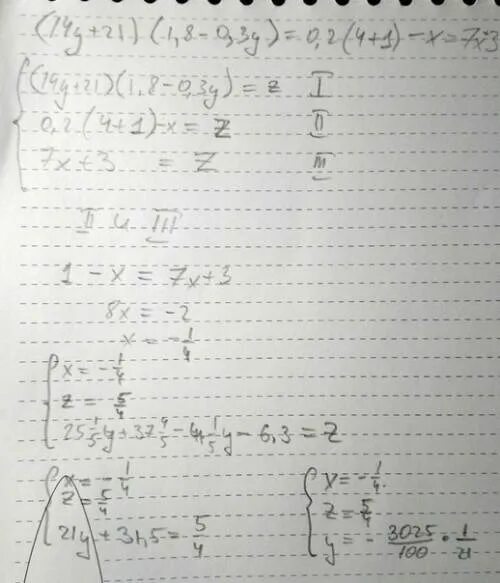 (14y+21)(1,8-0,3y)=0,2(4+1)-x=7x+3
(14y+21)(1,8-0,3y)=z I
0,2(4+1)-x=z II
7x+3 = z III
II и III
1-x=7x+3
8x=-2
x=-1/4
x=-1/4
z=5/4
25 1/5y+37 4/5-4 1/5y-6,3=z
x=-1/4
z=5/4
21y+31,5=5/4
x=-1/4
z=5/4
y=-3025/100·1/21